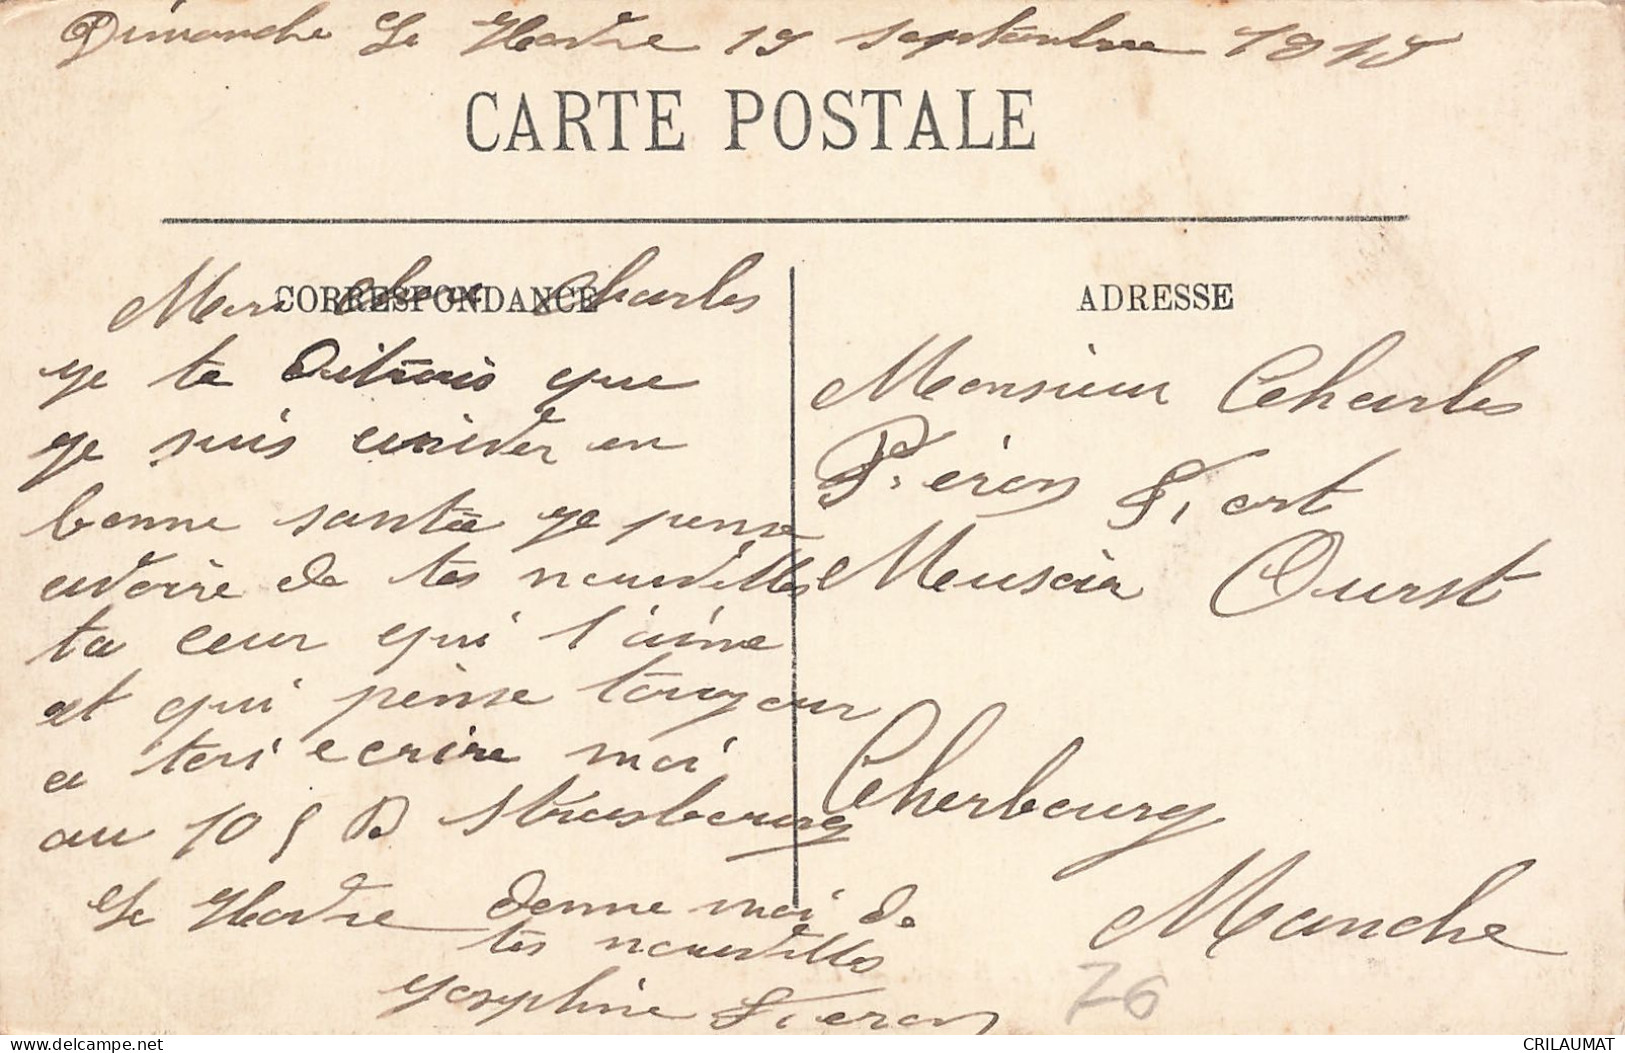 Dimanche Le Havre 19 septembre 1915
CARTE POSTALE
CORRESPONDANCE
Mon Cher Charles
ge te que
ge suis ariver en
bonne santée ge pense
avoire de tes nouvelles
ta ceur qui t'aime
et qui pense tougour
a toi ecrire moi
au 10 B Strasbourg
Le Havre donne moi de
tes nouvelles
gosephine Fieron
ADRESSE
Monsieur Charles
Fieron Fort
Ouest
Cherbourg
Manche
76
CRILAUMAT